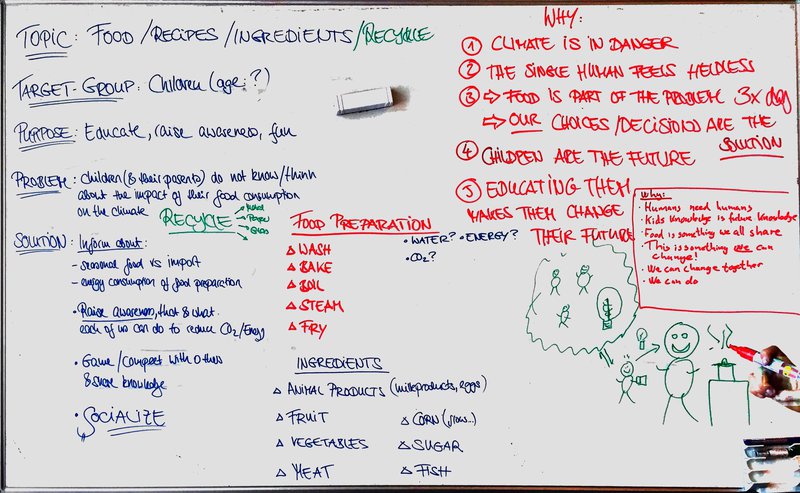 TOPIC: FOOD/RECIPES/INGREDIENTS/RECYCLE
TARGET-GROUP: Children (age:?)
PURPOSE: Educate, raise awareness, fun
PROBLEM: children (& their parents) do not know/think
about the impact of their food consumption
on the climate
RECYCLE
Paper
Glass
SOLUTION: Inform about:
- seasonal food vs import
- energy consumption of food preparation
• Raise awareness, that & what
each of us can do to reduce CO2/Energy
• Game/compete with others
& share knowledge
• SOCIALIZE
FOOD PREPARATION
WASH
BAKE
BOIL
STEAM
FRY
• WATER? • ENERGY?
• CO2?
INGREDIENTS
ANIMAL PRODUCTS (milkproducts, eggs)
FRUIT
VEGETABLES
MEAT
CORN (flour..)
SUGAR
FISH
WHY:
① CLIMATE IS IN DANGER
② THE SINGLE HUMAN FEELS HELPLESS
③ ⇒ FOOD IS PART OF THE PROBLEM 3x day
⇒ OUR CHOICES/DECISIONS ARE THE
SOLUTION
④ CHILDREN ARE THE FUTURE
⑤ EDUCATING THEM
MAKES THEM CHANGE
THEIR FUTURE
Why:
• Humans need humans
• Kids knowledge is future knowledge
• Food is something we all share
• This is something we can
change!
• We can change together
• We can do